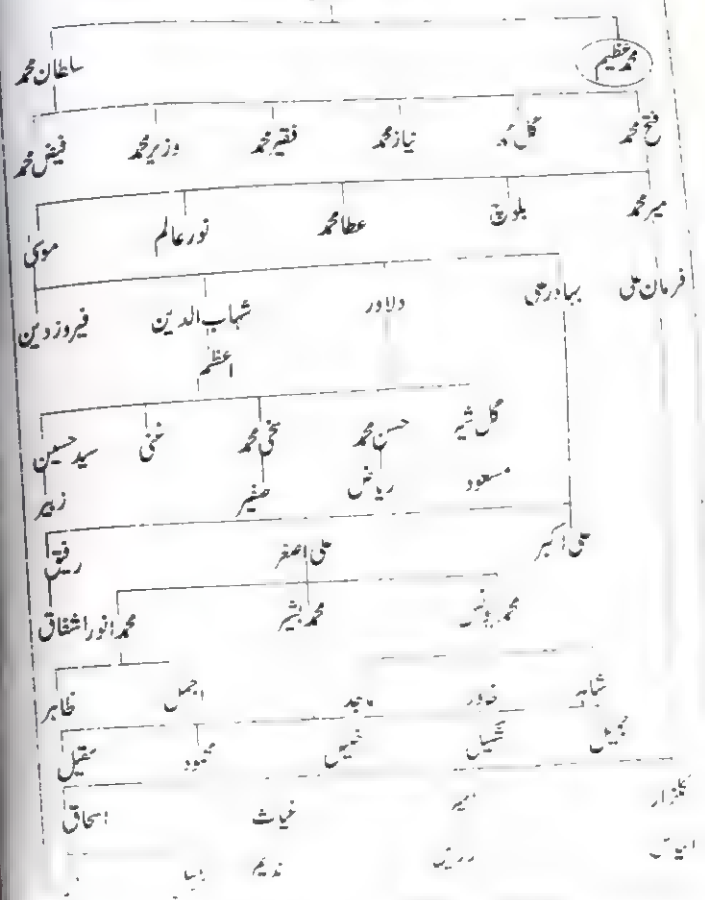 محمد عظیم سلطان محمد
فتح محمد گل محمد نیاز محمد فقیر محمد وزیر محمد فیض محمد
میر محمد بلوچ عطا محمد نور عالم موسیٰ
فرمان علی بہادر علی دلاور شہاب الدین فیروز دین
اعظم
گل شیر حسن محمد سخی محمد غنی سید حسین
مسعود ریاض صغیر زبیر
علی اکبر علی اصغر رفیق
محمد یونس محمد بشیر محمد انور اشفاق
شاہد ماجد اجمل طاہر
شکیل محمود عقیل
گلزار غیاث اسحاق
ندیم